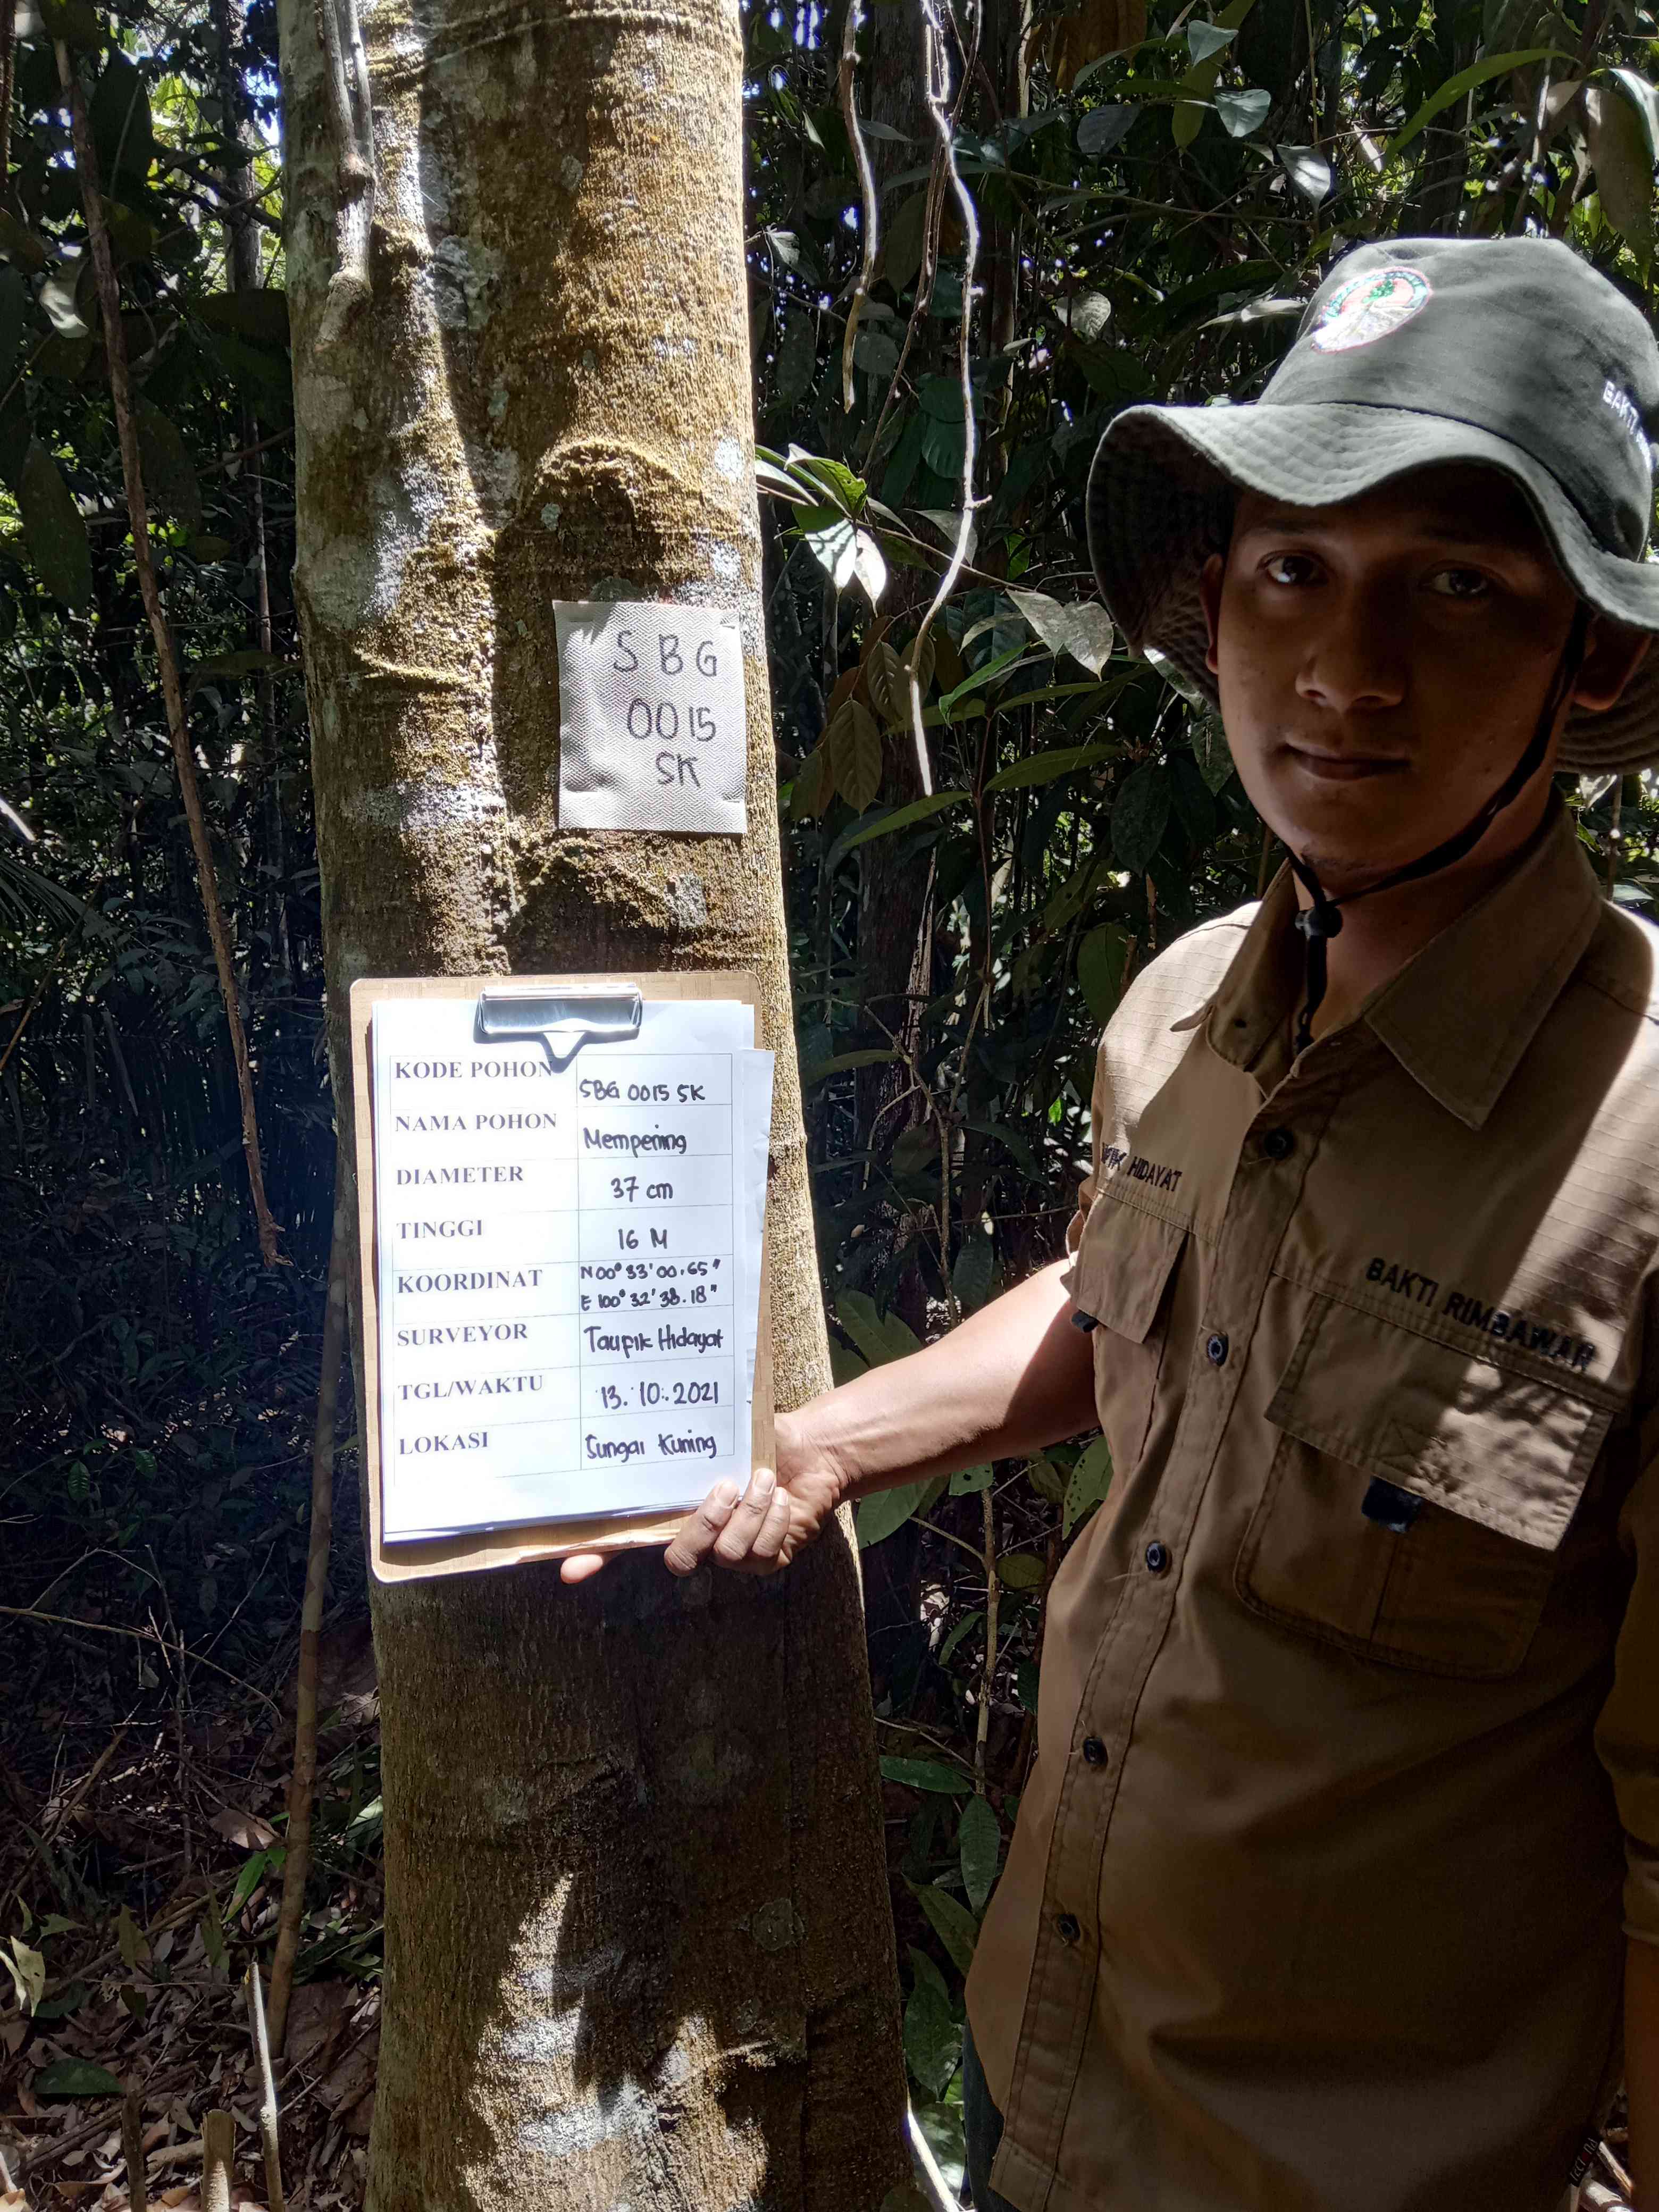 S B G
0015
SK
KODE POHON SBG 0015 SK
NAMA POHON Mempening
DIAMETER 37 cm
TINGGI 16 M
KOORDINAT N 00° 33' 00.65"
E 100° 32' 38.18"
SURVEYOR Taufik Hidayat
TGL/WAKTU 13. 10. 2021
LOKASI Sungai Kuning
HIDAYAT
BAKTI RIMBAWAN
BAKTI